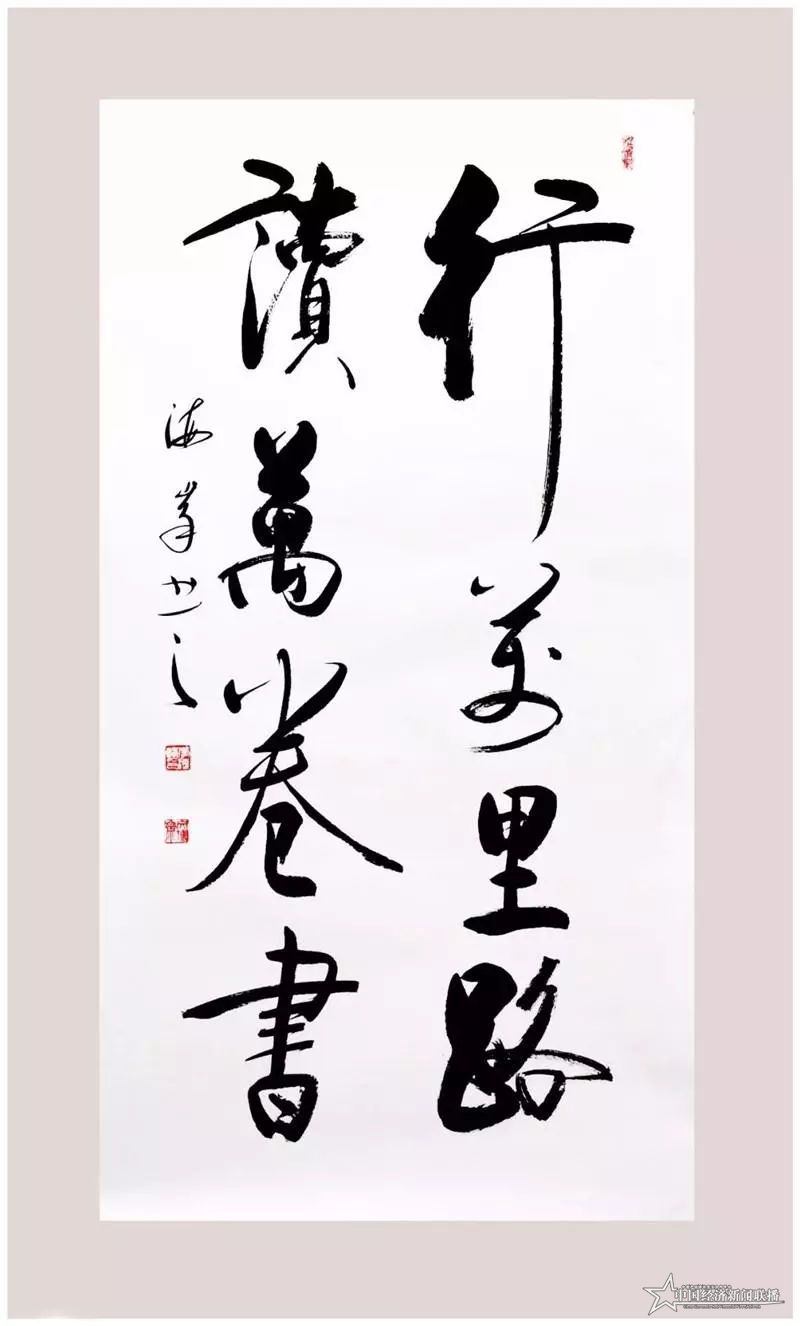 行万里路
讀萬卷書
海峰书之
中国经济新闻联播